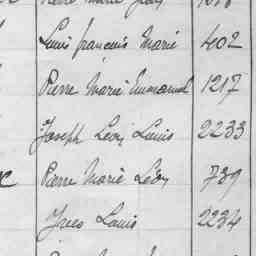 Louis françois Marie 402
Pierre Marie Emmanuel 1217
Joseph Léon Louis 2233
Pierre Marie Léon 789
Yves Louis 2234